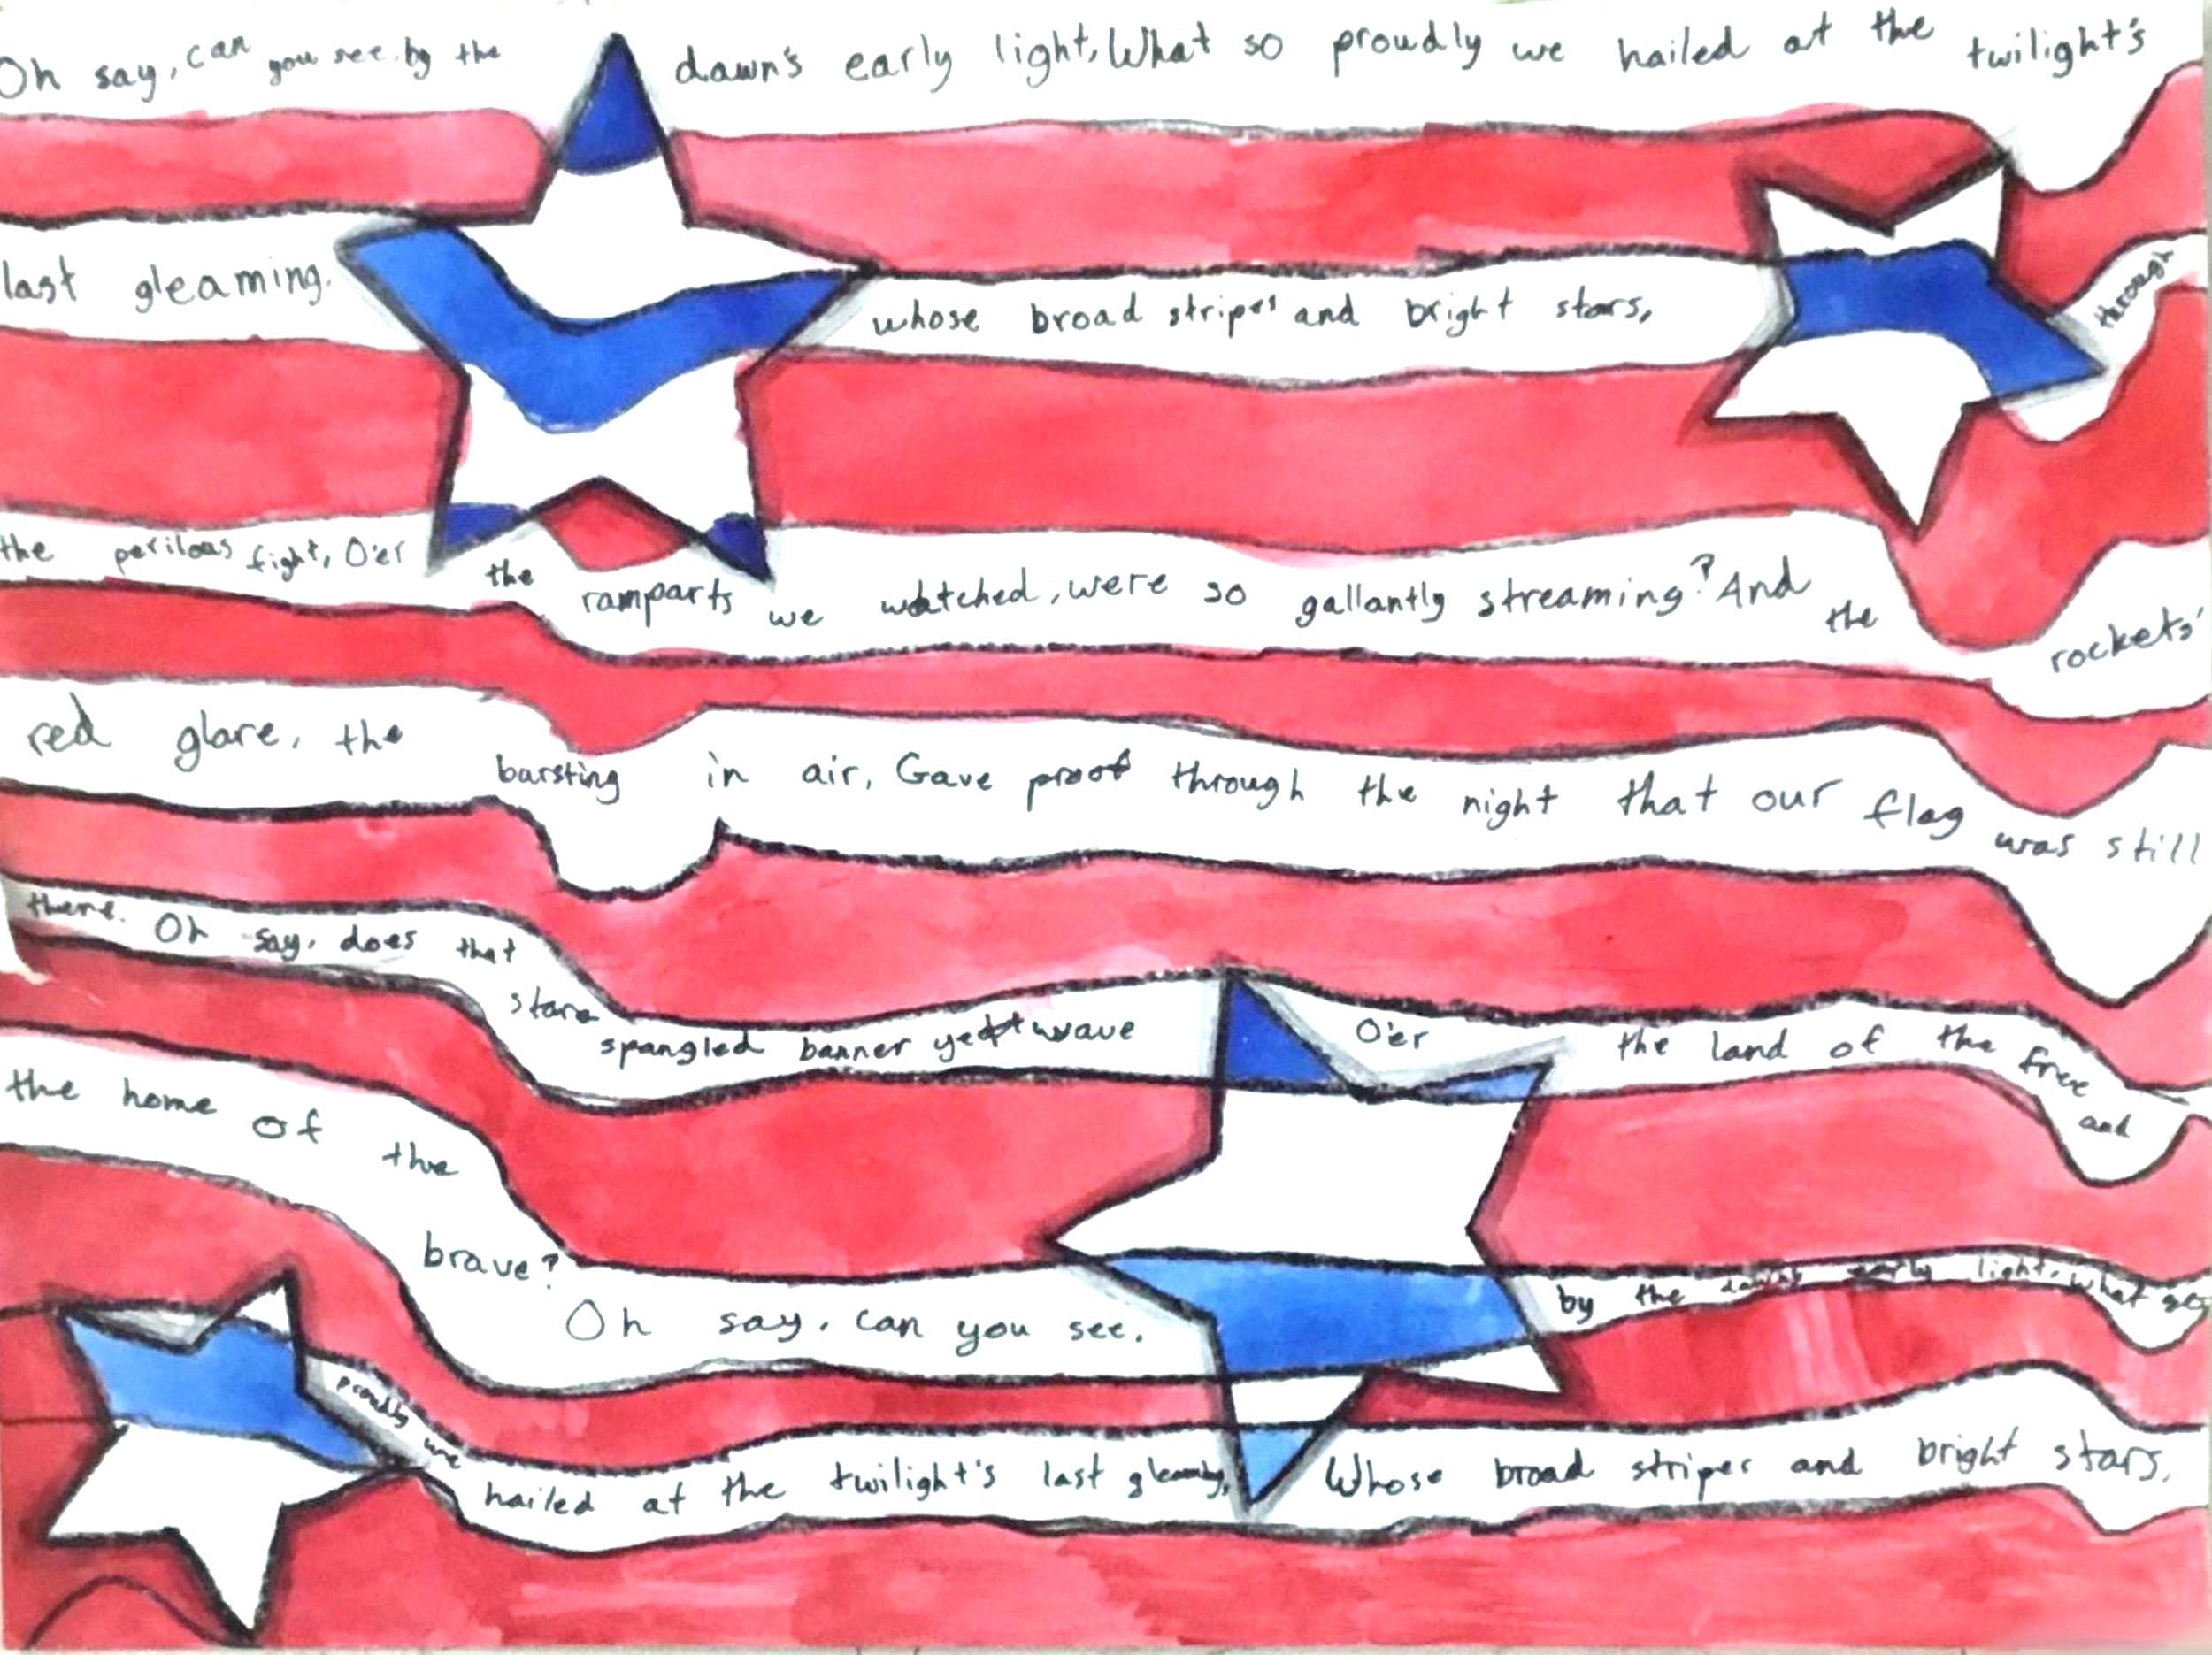 Oh say, can you see, by the dawn's early light, What so proudly we hailed at the twilight's
last gleaming. whose broad stripes and bright stars, through
the perilous fight, O'er the ramparts we watched, were so gallantly streaming? And the rockets'
red glare, the barsting in air, Gave proof through the night that our flag was still
there. Oh say, does that stars spangled banner yet wave O'er the land of the free and
the home of the brave? Oh say, can you see, by the dawn's early light, what so
proudly we hailed at the twilight's last gleaming, Whose broad stripes and bright stars,